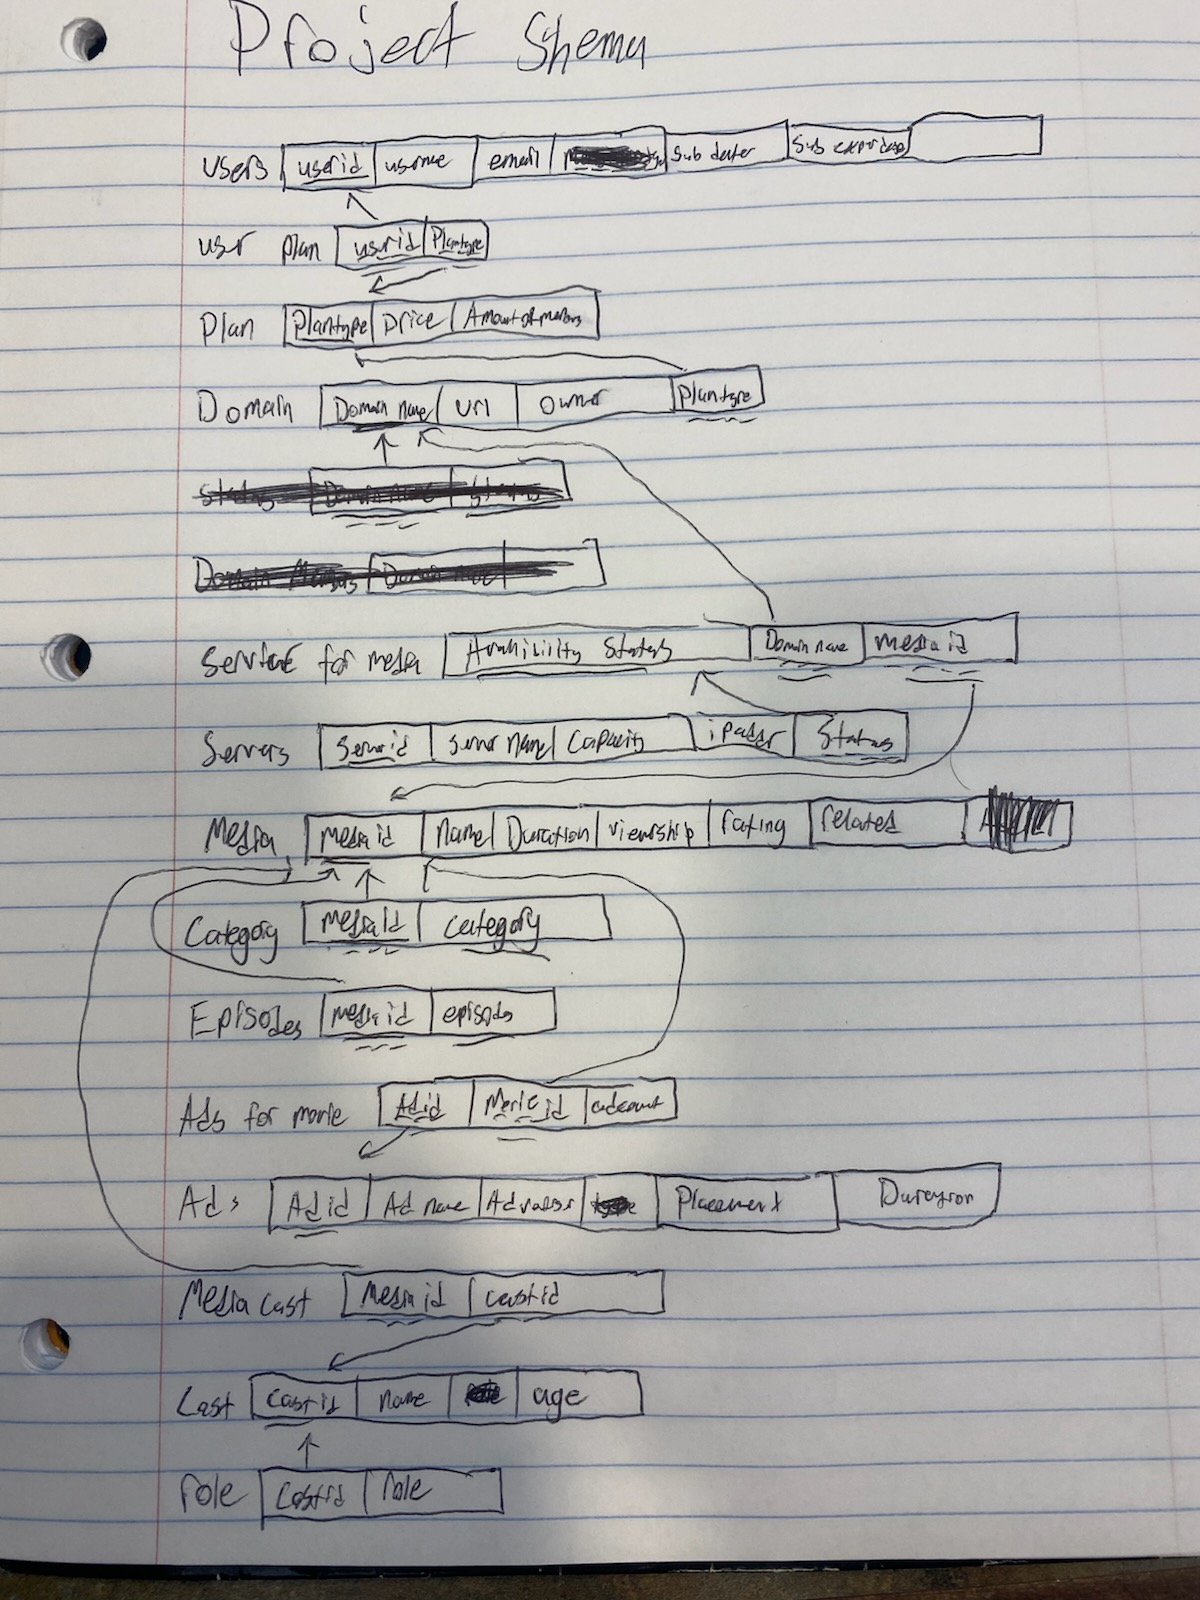 Project Shema
users userid usrnme email Sub dater Sub expirdate
user plan userid Plantype
Plan Plantype price
Domain Domain name url owner Plantype
Service for media Status Domain name media id
Servers id name Capacity ipaddr Status
Media media id name Duration viewship rating related
Category media id category
Episodes media id episods
Ads for movie Adid id
Ads Adid Ad name Placement
Media cast Media id castid
Cast castid name age
role Castid role